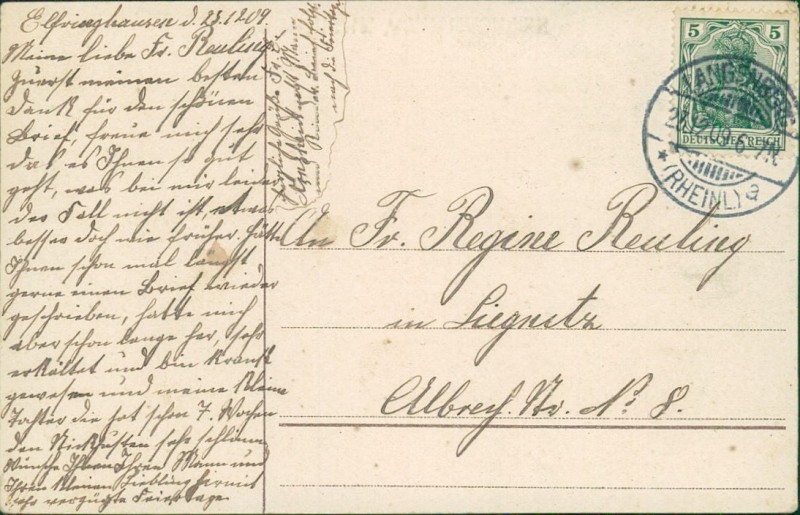 Elfringhausen d. 23.12.09.
Meine liebe Fr. Reuling
Zuerst meinen besten
Dank für den schönen
Brief, freue mich sehr
das es Ihnen so gut
geht, was bei mir leider
der Fall nicht ist, etwas
besser doch wie früher. Hätte
Ihnen schon mal längst
gerne einen Brief wieder
geschrieben, hatte mich
aber schon lange her, sehr
erkältet und bin Krank
gewesen und meine Kleine
Tochter die hat schon 7. Wochen
den Stickhusten sehr schlimm
Wünsche Ihnen Ihren Mann und
Ihren Kleinen Liebling hiermit
sehr vergnügte Feiertage
5 5
DEUTSCHES REICH
LANGENBERG
(RHEINL) a
An Fr. Regine Reuling
in Liegnitz
Albrech. Str. No 8.